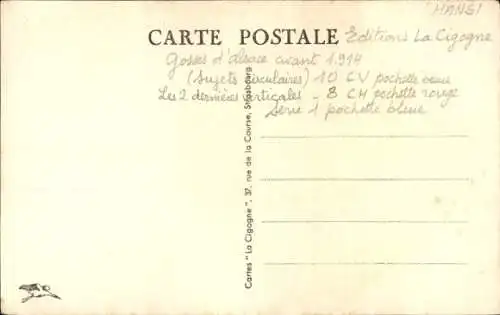 HANSI
CARTE POSTALE Editions La Cigogne
Gosses d'Alsace avant 1.914
(Sujets circulaires) 10 CV pochette
Les 2 dernières verticales - 8 CH pochette rouge
série 1 pochette bleue
Cartes "La Cigogne", 37, rue de la Course, Strasbourg